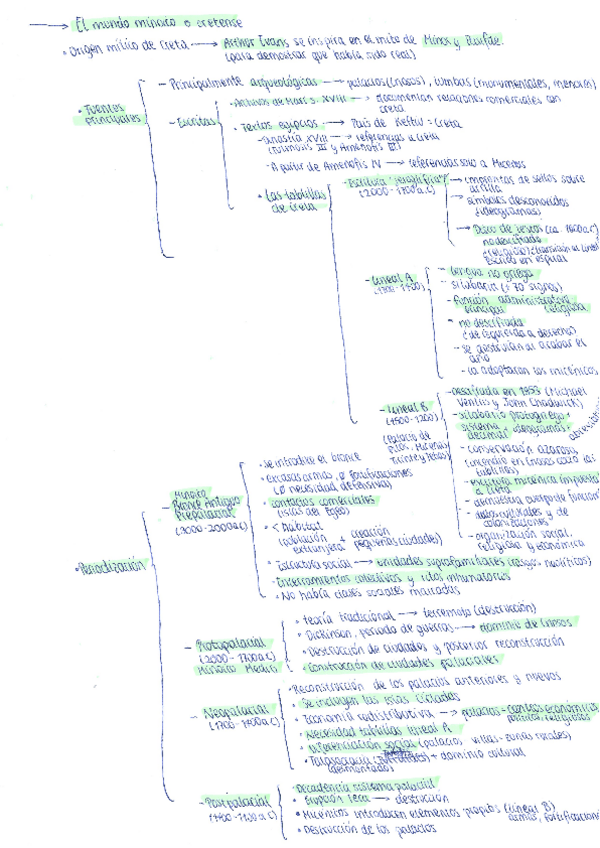 → El mundo minoico o cretense
• Origen mítico de Creta → Arthur Evans se inspira en el mito de Minos y
(para demostrar que había sido real)
• Fuentes principales
- Principalmente arqueológicas → palacios (Cnosos), tumbas (monumentales, menores)
- Escritas
- Archivos de Mari s. XVIII → documentan relaciones comerciales con Creta
• Textos egipcios → País de Keftiu = Creta
- Dinastía XVIII → referencias a Creta
(Tutmosis III y Amenofis
- A partir de Amenofis IV → referencias solo a Micenas
• Las tablillas de Creta
- Escritura jeroglífica
(2000 - 1700 a.C)
→ improntas de sellos sobre arcilla
→ símbolos desconocidos
(ideogramas)
→ Disco de
no descifrado
Escrito en espiral
- Lineal A
- Lengua no griega
- silabario (± 70 signos)
- función administrativa principal religiosa
- no descifrada
(de izquierda a derecha)
- se destruían al acabar el año
- la adaptaron los micénicos
- Lineal B
(1500 - 1200)
(palacio de
- Descifrada en 1953 (Michael
Ventris y John Chadwick)
- silabario protogriego +
sistema decimal + ideogramas +
- conservación azarosa
(incendio en Cnosos
- escritura micénica
a Creta
- datos cultuales y de
- organización social,
religiosa y económica
• Periodización
- Minoico Bronce Antiguo Prepalacial
(3000 - 2000 a.C)
• se introduce el bronce
• escasas armas, Ø fortificaciones
(Ø necesidad defensiva)
• contactos comerciales
(islas del Egeo)
• < hábitat
(población extranjera + creación pequeñas ciudades)
• Estructura social → unidades suprafamiliares (rasgos neolíticos)
• Enterramientos colectivos y ritos inhumatorios
• No había clases sociales marcadas
- Protopalacial
(2000 - 1700 a.C)
Minoico Medio
• teoría tradicional → terremoto (destrucción)
• Dickinson, periodo de guerras → dominio de Cnosos
• Destrucción de ciudades y posterior reconstrucción
• Construcción de ciudades palaciales
- Neopalacial
• Reconstrucción de los palacios anteriores y nuevos
• Se incluyen las islas Cícladas
• Economía redistributiva → palacios = centros económicos políticos, religiosos
• Necesidad tablillas lineal A
• Diferenciación social (palacio, villas - zonas rurales)
• Talasocracia + dominio cultural
(desmontado)
- Postpalacial
• Decadencia sistema palacial
• Erupción Tera → destrucción
• Micénicos introducen elementos propios (lineal B)
armas, fortificaciones
• Destrucción de los palacios